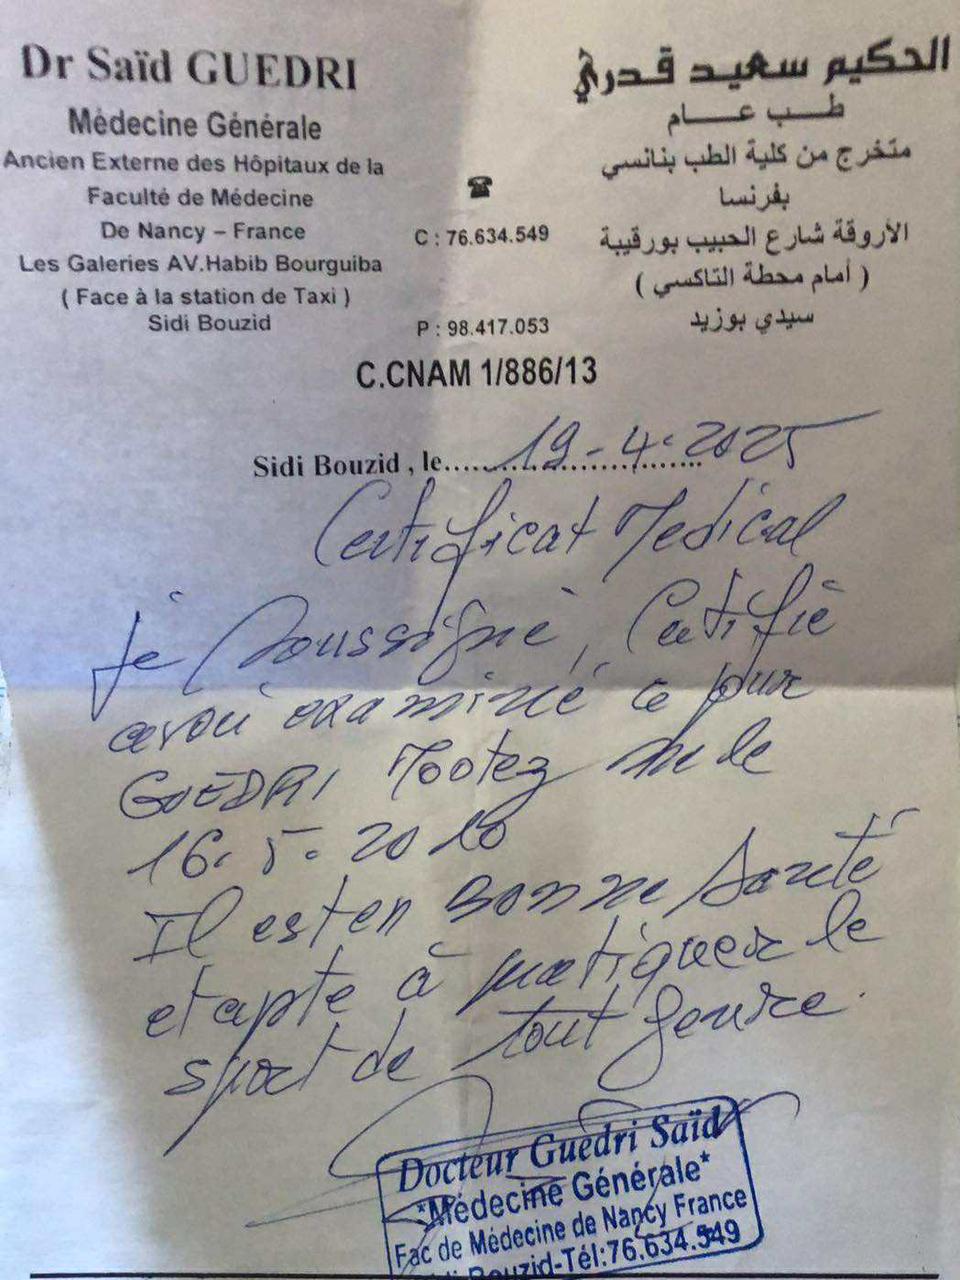 Dr Saïd GUEDRI
Médecine Générale
Ancien Externe des Hôpitaux de la
Faculté de Médecine
De Nancy – France
Les Galeries AV.Habib Bourguiba
( Face à la station de Taxi )
Sidi Bouzid
☎
C : 76.634.549
P : 98.417.053
الحكيم سعيد قدري
طب عام
متخرج من كلية الطب بنانسي
بفرنسا
الأروقة شارع الحبيب بورقيبة
( أمام محطة التاكسي )
سيدي بوزيد
C.CNAM 1/886/13
Sidi Bouzid , le 19-4-2025
Certificat Medical
je soussigné, Certifie
avoir examiné ce jour
GUEDRI Mootez né le
16. 5. 2010
Il est en Bonne Santé
et apte à pratiquer le
sport de tout genre.
Docteur Guedri Saïd
*Médecine Générale*
Fac de Médecine de Nancy France
Sidi Bouzid-Tél:76.634.549